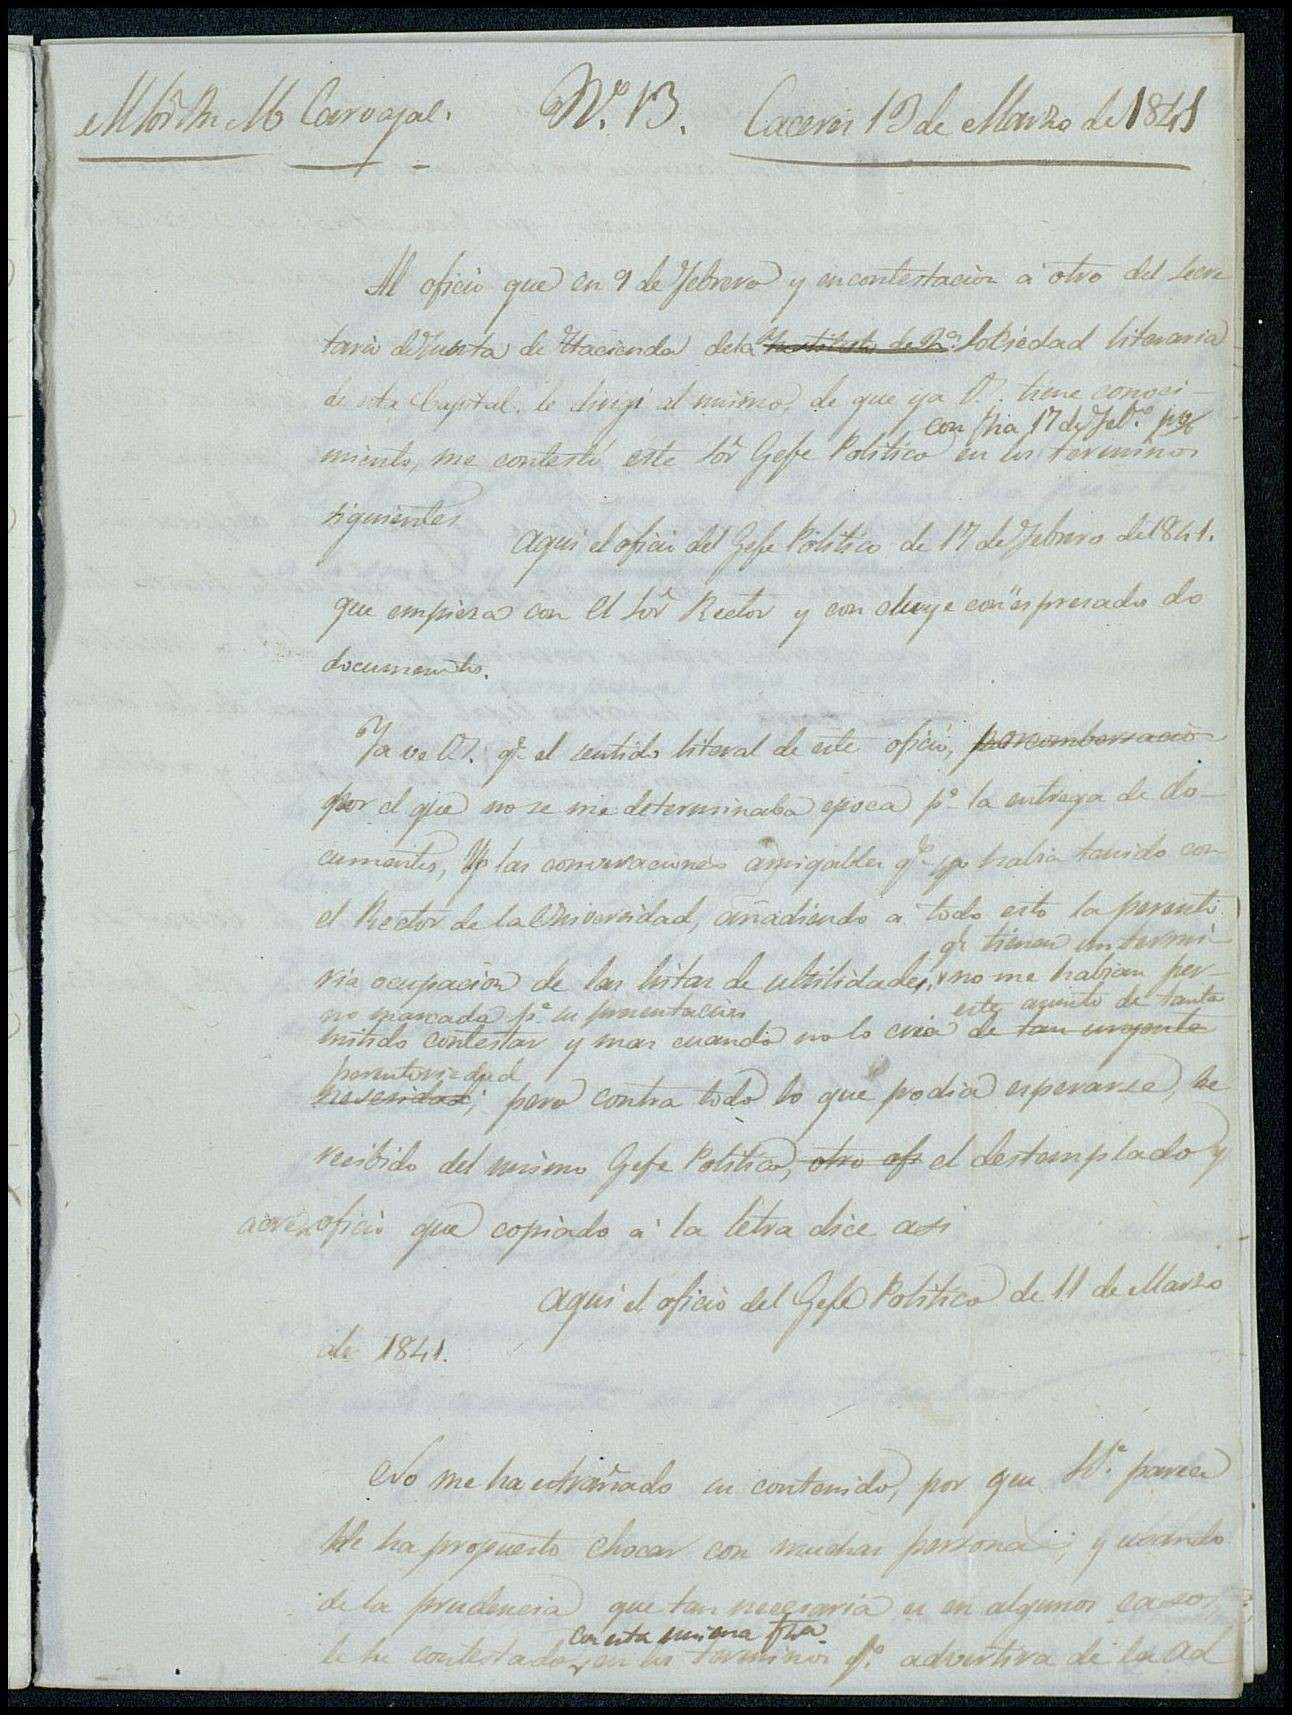 M Carvajal.
N.º 13.
Caceres 13 de Marzo de 1841
Al oficio que en 9 de Febrero y en contestacion á otro del Secre
tario de Junta de Hacienda de la Instituto de 2.ª Sociedad literaria
de esta Capital, le dirigí al mismo, de que ya V. tiene conoci-
con fha 17 de Feb.º
miento, me contestó este Sor Gefe Politico en los terminos
siguientes
Aqui el oficio del Gefe Politico de 17 de Febrero de 1841.
que empieza con El Sor Rector y concluye con "espresado do
documento.
Ya ve V. q.e el sentido literal de este oficio,
por el que no se me determinaba epoca p.a la entrega de do-
cumentos, y las conversaciones amigables q.e yo habia tenido con
el Rector de la Universidad, añadiendo a todo esto la perento
q.e tienen un termi-
ria ocupacion de las listas de utilidades, no me habian per-
no marcado p.a su presentacion
este asunto de tanta
mitido contestar y mas cuando no lo creia de tan urgente
perentoriedad
necesidad; pero contra todo lo que podia esperarse, he
recibido del mismo Gefe Politico, otro ofi el destemplado y
acre oficio que copiado á la letra dice asi
Aqui el oficio del Gefe Politico de 11 de Marzo
de 1841.
No me ha estrañado su contenido, por que S.ª parece
se ha propuesto chocar con muchas personas; y usando
de la prudencia que tan necesaria es en algunos casos,
con esta misma fha
le he contestado en los terminos q.e advertira de la ad